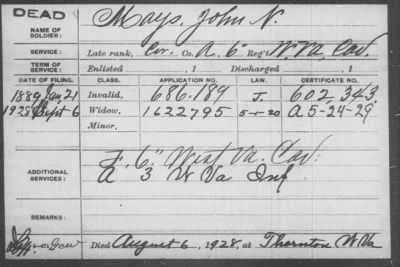 DEAD
NAME OF SOLDIER: Mays, John N.
SERVICE: Late rank, Cor. Co. A, 6" Reg't W. Va. Cav.
TERM OF SERVICE: Enlisted , 1 Discharged , 1
DATE OF FILING. CLASS. APPLICATION NO. LAW. CERTIFICATE NO.
1889 Jan 21 Invalid, 686.189 J. 602,343
1928 Sept 6 Widow, 1622795 5-1-20 A 5-24-29
Minor,
ADDITIONAL SERVICES:
F. 6" West Va. Cav:
A 3 W Va Inf
REMARKS:
Died August 6, 1928, at Thornton W Va